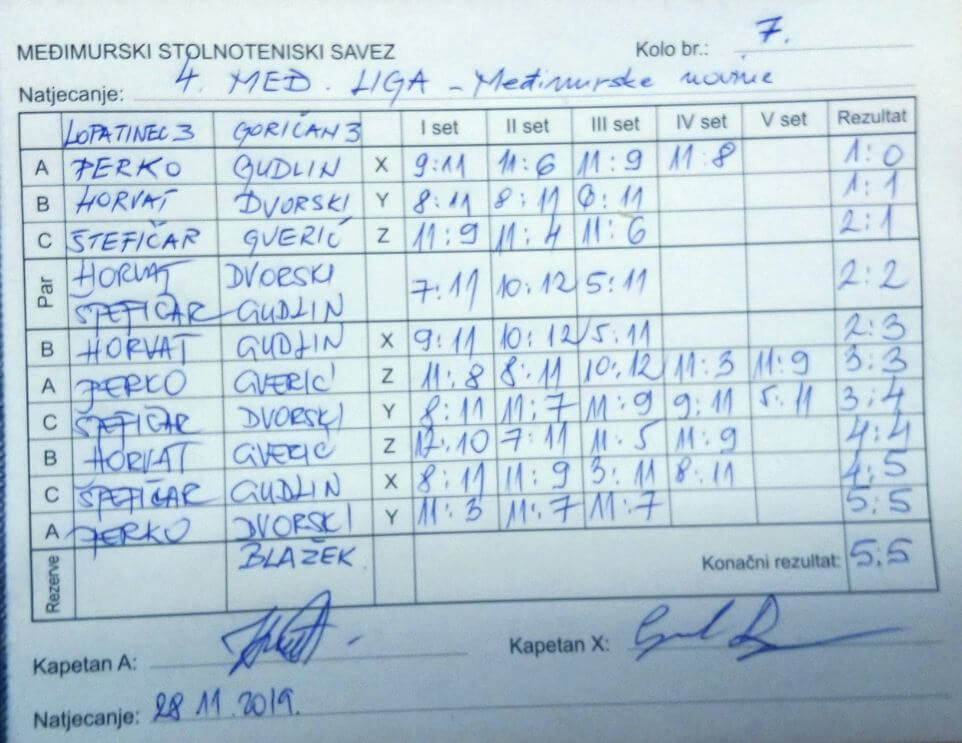 MEĐIMURSKI STOLNOTENISKI SAVEZ Kolo br.: 7.
Natjecanje: 4. MEĐ. LIGA - Međimurske novine
LOPATINEC 3 GORIČAN 3 I set II set III set IV set V set Rezultat
A PERKO GUDLIN X 9:11 11:6 11:9 11:8 1:0
B HORVAT DVORSKI Y 8:11 8:11 8:11 1:1
C ŠTEFIČAR GVERIĆ Z 11:9 11:4 11:6 2:1
Par HORVAT DVORSKI 7:11 10:12 5:11 2:2
ŠTEFIČAR GUDLIN
B HORVAT GUDLIN X 9:11 10:12 5:11 2:3
A PERKO GVERIĆ Z 11:8 8:11 10:12 11:3 11:9 3:3
C ŠTEFIČAR DVORSKI Y 8:11 11:7 11:9 9:11 5:11 3:4
B HORVAT GVERIĆ Z 12:10 7:11 11:5 11:9 4:4
C ŠTEFIČAR GUDLIN X 8:11 11:9 3:11 8:11 4:5
A PERKO DVORSKI Y 11:3 11:7 11:7 5:5
Rezerve BLAŽEK Konačni rezultat: 5:5
Kapetan A: Kapetan X:
Natjecanje: 28.11.2019.